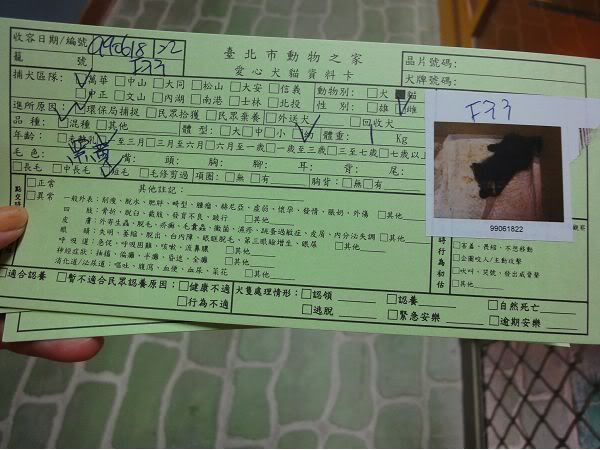 收容日期/編號 990618 22
籠 號 F33
臺北市動物之家
愛心犬貓資料卡
晶片號碼:
犬牌號碼:
捕犬區隊: □萬華 □中山 □大同 □松山 □大安 □信義 動物別: □犬 ■貓
□中正 □文山 □內湖 □南港 □士林 □北投 性 別: □雄 □雌
進所原因: □環保局捕捉 □民眾拾獲 □民眾棄養 □外送犬 □回收犬
品 種: □混種 □其他 體 型: □大 □中 □小 體重: 1 Kg
年齡: 至三月 □三月至六月 □六月至一歲 □一歲至三歲 □三至七歲 □七歲以上
毛 色: 黑黃 背: 頭: 胸: 腳: 耳: 背: 尾:
□長毛 □中長毛 □短毛 □毛修剪過 項圈: □無 □有 胸背: □無 □有
□正常 其他註記:
□異常 一般外表: 削瘦、脫水、肥胖、畸型、腫瘤、赫尼亞、虛弱、懷孕、發情、脹奶、外傷 □其他
四 肢: 骨折、脫臼、截肢、發育不良、跛行 □其他
皮 膚: 外寄生蟲、脫毛、疥癬、毛囊蟲、黴菌、濕疹、跳蚤過敏症、皮屑、內分泌失調 □其他
眼 睛: 失明、萎縮、脫出、白內障、眼瞼脫毛、第三眼瞼增生、眼屎 □其他
呼 吸 道: 急促、呼吸困難、咳嗽、流鼻膿 □其他
神經症狀: 抽搐、偏癱、半癱、昏迷、全癱 □其他
消化道/泌尿道: 嘔吐、腹瀉、血便、血尿、菜花 □其他
F33
99061822
時行為初估
□害羞、畏縮、不想移動
□企圖咬人/主動攻擊
□吠叫、哭號、發出威脅聲
□其他
□適合認養 ■暫不適合民眾認養原因: □健康不適
□行為不適
犬隻處理情形: □認領 □認養 □自然死亡
□逃脫 □緊急安樂 □逾期安樂